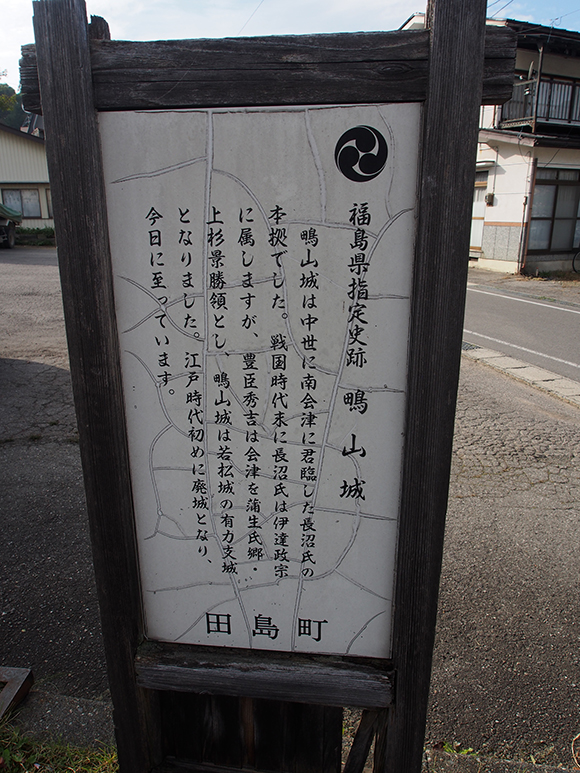 福島県指定史跡 鴫山城
鴫山城は中世に南会津に君臨した長沼氏の
本拠でした。戦国時代末に長沼氏は伊達政宗
に属しますが、豊臣秀吉は会津を蒲生氏郷・
上杉景勝領とし、鴫山城は若松城の有力支城
となりました。江戸時代初めに廃城となり、
今日に至っています。
田島町